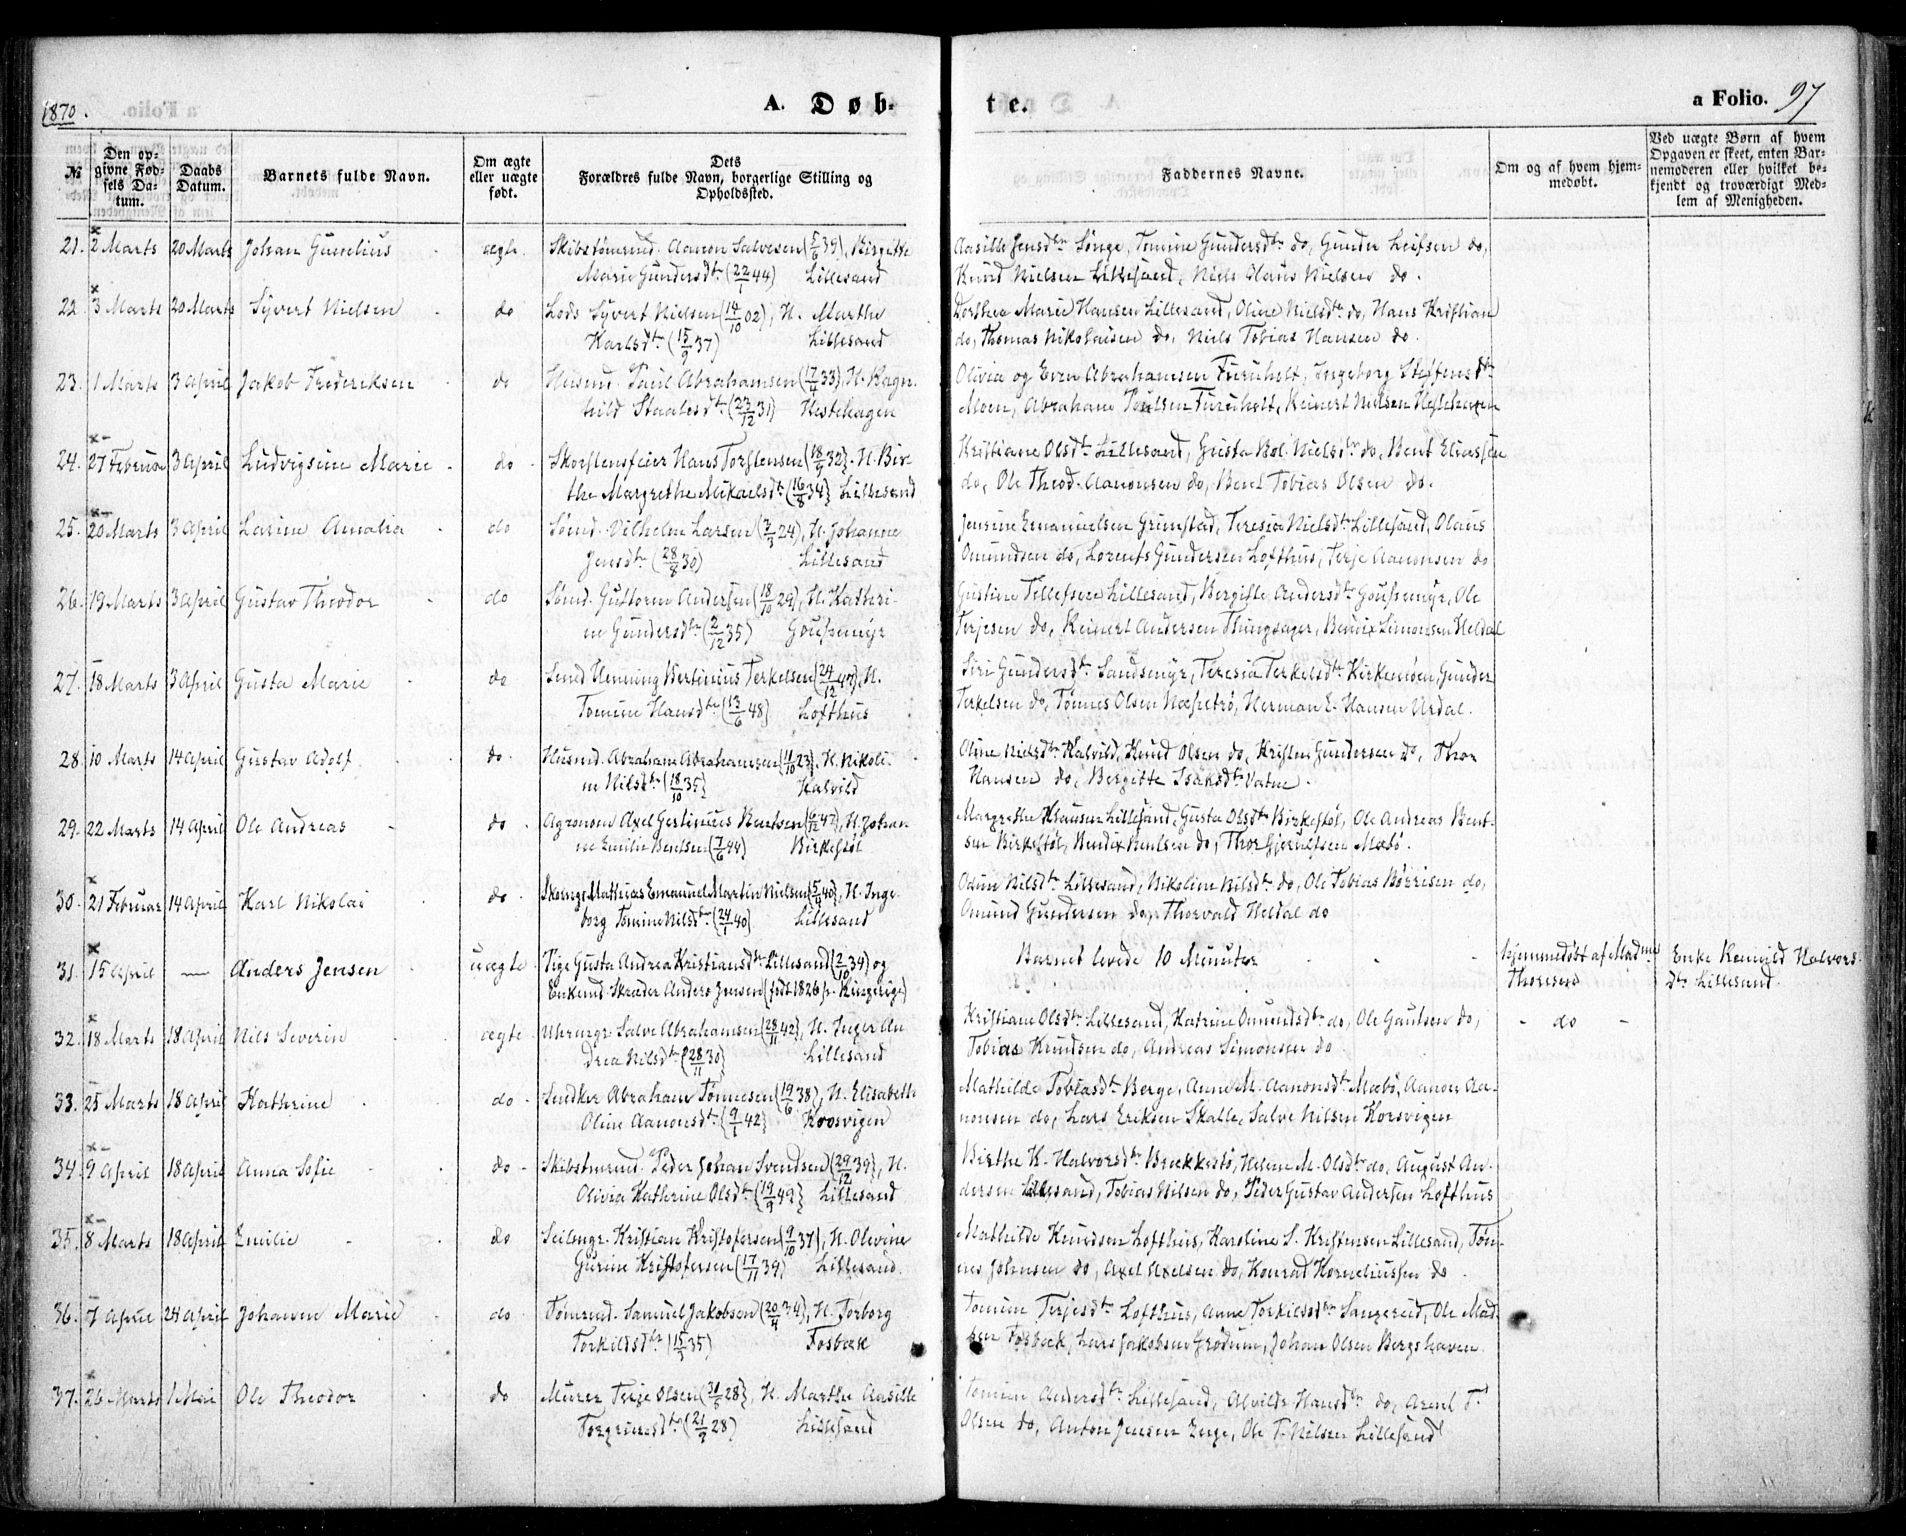 1870.
A. Døb-
te.
a Folio. 97
№
Den op-
givne Fød-
sels Da-
tum.
Daabs
Datum.
Barnets fulde Navn.
Om ægte
eller uægte
født.
Dets
Forældres fulde Navn, borgerlige Stilling og
Opholdssted.
Faddernes Navne.
Om og af hvem hjem-
medøbt.
Ved uægte Børn af hvem
Opgaven er skeet, enten Bar-
nemoderen eller hvilket be-
kjendt og troværdigt Med-
lem af Menigheden.
21. 2 Marts 20 Marts Johan Gunelius ægte. Skibstømrmd. Aanon Salvesen (5/6 39), Birgitte
Marie Gundersdtr (22/1 44) Lillesand
Aasille Jensdtr Songe, Tomine Gundersdtr do, Gunder Leifsen do,
Knud Nielsen Lillesand, Niels Olaus Nielsen do.
22. 3 Marts 20 Marts Syvert Nielsen do Lods Syvert Nielsen (14/10 02), H. Marthe
Karlsdtr (15/9 37) Lillesand
Dorthea Marie Hansen Lillesand, Oline Nielsdtr do, Hans Kristian
do, Thomas Nikolaisen do, Niels Tobias Hansen do.
23. 1 Marts 3 April Jakob Frederiksen do Husmd. Paul Abrahamsen (17/4 33), H. Ragn-
hild Staalesdtr (23/12 31) Hestehagen
Olivia og Even Abrahamsen Furuholt, Ingeborg Steffensdtr
Moen, Abraham Poulsen Furuholt, Reinert Nielsen Hestehagen
24. 27 Februar 3 April Ludvigsine Marie do. Skorstensfeier Hans Torstensen (18/9 32). H. Bir-
the Margrethe Mikaelsdtr (16/8 34) Lillesand
Kristiane Olsdtr Lillesand, Gusta Bol. Nielsdtr do, Bent Eliassen
do, Ole Theod. Aanonsen do, Bent Tobias Olsen do.
25. 20 Marts 3 April Larine Amalia do Sømd. Vilhelm Larsen (7/3 24), H. Johanne
Jensdtr (28/8 30) Lillesand
Jensine Emanuelsen Grimstad, Teresia Nielsdtr Lillesand, Olaus
Omundsen do, Lorents Gundersen Lofthus, Terje Aanonsen do
26. 19 Marts 3 April Gustav Theodor do Sømd. Guttorm Andersen (18/10 29), H. Kathri-
ne Gundersdtr (2/12 35) Goussemyr
Gustine Tellefsen Lillesand, Bergitte Andersdtr Goussemyr, Ole
Terjesen do, Reinert Andersen Thingsager, Bendix Simonsen Heldal
27. 18 Marts 3 April Gusta Marie do Smed Henning Bertinius Terkelsen (24/12 47), H.
Tomine Hansdtr (13/6 48) Lofthus
Siri Gundersdtr Sandsmyr, Teresia Terkelsdtr Kirkemoen, Gunder
Terkelsen do, Tønnes Olsen Næsetrø, Herman E. Hansen Urdal.
28. 10 Marts 14 April Gustav Adolf do. Husmd. Abraham Abrahamsen (11/10 23), H. Nikoli-
ne Nilsdtr (18/10 35) Kalvild
Oline Nielsdtr Kalvild, Knud Olsen do, Kristen Gundersen do, Thor
Hansen do, Bergitte Isaksdtr Vatne.
29. 22 Marts 14 April Ole Andreas do. Agronom Axel Gerhinius Bentsen (6/12 42), H. Johan-
ne Emilie Bentsen (7/6 44) Birkestøl
Margrethe Klausen Lillesand, Gusta Olsdtr Birkestøl, Ole Andreas Bent-
sen Birkestøl, Bendix Bentsen do, Thor Gjerulfsen Mæbø.
30. 21 Februar 14 April Karl Nikolai do. Skomgr. Mathias Emanuel Martin Nielsen (5/9 40), H. Inge-
borg Tomine Nilsdtr (24/1 40) Lillesand
Odine Nilsdtr Lillesand, Nikoline Nilsdtr do, Ole Tobias Børrisen do,
Omund Gundersen do, Thorvald Heldal do
31. 15 April — Anders Jensen uægte. Pige Gusta Andrea Kristiansdtr Lillesand (2/10 34) og
Enkemd. Skræder Anders Jensen (født 1826 p. Ringerige)
Barnet levede 10 Minuter
Hjemmedøbt af Madme
Thoresen
Enke Ranvild Halvors-
dtr Lillesand.
32. 18 Marts 18 April Nils Severin ægte Uhrmgr. Salve Abrahamsen (28/11 42), H. Inger An-
drea Nilsdtr (28/11 30) Lillesand
Kristiane Olsdtr Lillesand, Katrine Omundsdtr do, Ole Gautsen do,
Tobias Knudsen do, Andreas Simonsen do
- do -
33. 25 Marts 18 April Kathrine do. Snedker Abraham Tønnesen (19/6 38), H. Elisabeth
Oline Aanonsdtr (9/1 42) Korsvigen
Mathilde Tobiasdtr Berge, Anne M. Aanonsdtr Mæbø, Aanon Aa-
nonsen do, Lars Eriksen Skalle, Salve Nilsen Korsvigen
34. 9 April 18 April Anna Sofie do. Skibstmrmd. Peder Johan Svendsen (29/12 39), H.
Olivia Kathrine Olsdtr (19/9 49) Lillesand
Birthe K. Halvorsdtr Brækkestø, Helene M. Olsdtr do, August An-
dersen Lillesand, Tobias Nilsen do, Peder Gustav Andersen Lofthus
35. 8 Marts 18 April Emilie do Seilmgr. Kristian Kristofersen (9/10 37), H. Olevine
Gurine Kristofersen (17/11 39) Lillesand.
Mathilde Knudsen Lofthus, Karoline S. Kristensen Lillesand, Tøn-
nes Johnsen do, Axel Axelsen do, Konrad Korneliussen do.
36. 7 April 24 April Johanne Marie do Tømrmd. Samuel Jakobsen (20/4 34), H. Torborg
Torkildsdtr (15/3 35) Fosbæk
Tomine Terjesdtr Lofthus, Anne Torkildsdtr Sangereid, Ole Mad-
sen Fosbæk, Lars Jakobsen Grødum, Johan Olsen Bergshaven.
37. 26 Marts 1 Mai Ole Theodor do Murer Terje Olsen (31/5 28), H. Marthe Aasille
Torgrimsdtr (21/9 28) Lillesand
Tomine Andersdtr Lillesand, Alvilde Hansdtr do, Arent T.
Olsen do, Anton Jensen Enge, Ole T. Nilsen Lillesand